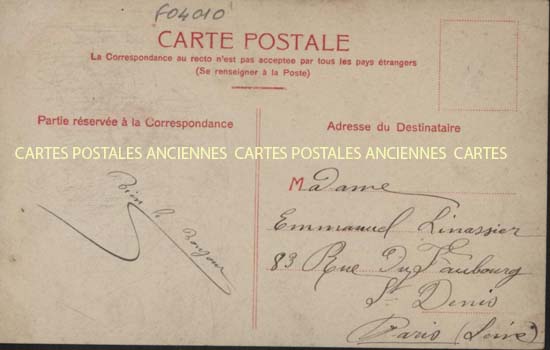 F04010
CARTE POSTALE
La Correspondance au recto n'est pas acceptée par tous les pays étrangers
(Se renseigner à la Poste)
Partie réservée à la Correspondance
Adresse du Destinataire
CARTES POSTALES ANCIENNES CARTES POSTALES ANCIENNES CARTES
Bien le Bonjour
Madame
Emmanuel Linassier
83 Rue Du Faubourg
St Denis
Paris (Seine)